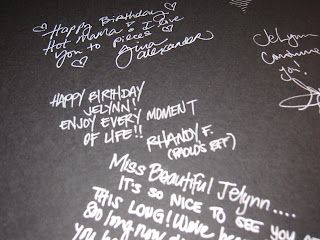 Happy Birthday
Hot Mama! I love
you to pieces
Gina
Alexander
Jelynn
ya!
HAPPY BIRTHDAY
JELYNN!
ENJOY EVERY MOMENT
OF LIFE!!
RHANDY F.
(PAOLO'S BFF)
Miss Beautiful Jelynn....
IT'S SO NICE TO SEE YOU
THIS LONG! We've
so long now
you